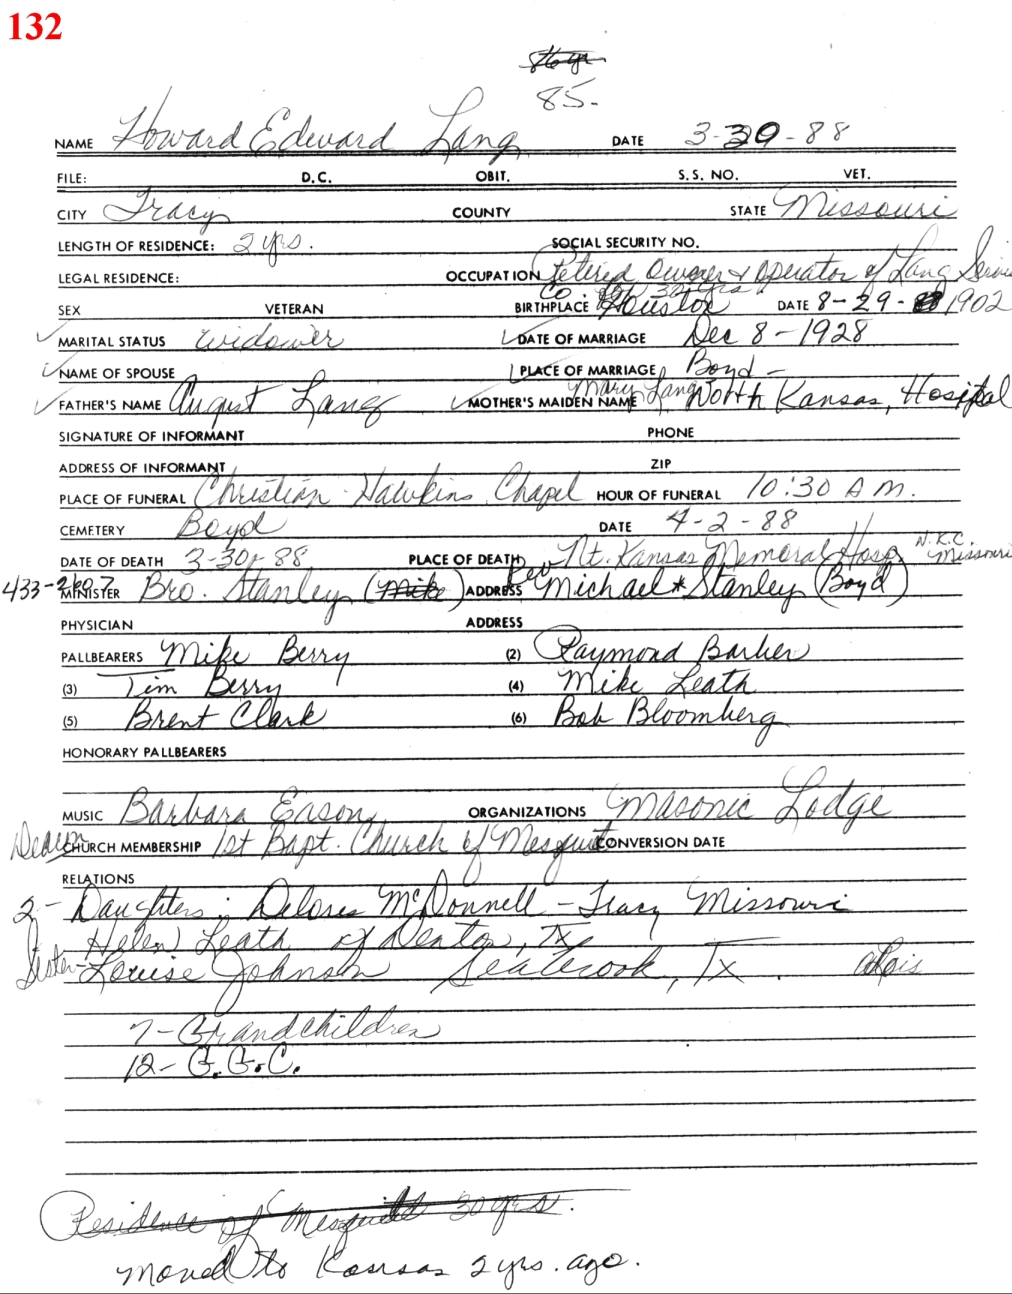 132
85.
NAME Howard Edward Lang DATE 3-30-88
FILE: D.C. OBIT. S.S. NO. VET.
CITY Tracy COUNTY STATE Missouri
LENGTH OF RESIDENCE: 2 yrs. SOCIAL SECURITY NO.
LEGAL RESIDENCE: OCCUPATION Retired Owner & Operator of Lang Servi
Co. 30 yrs
SEX VETERAN BIRTHPLACE Houston DATE 8-29-1902
MARITAL STATUS widower DATE OF MARRIAGE Dec 8-1928
NAME OF SPOUSE PLACE OF MARRIAGE Boyd -
FATHER'S NAME August Lang MOTHER'S MAIDEN NAME Mary Lang North Kansas, Hospital
SIGNATURE OF INFORMANT PHONE
ADDRESS OF INFORMANT ZIP
PLACE OF FUNERAL Christian-Hawkins Chapel HOUR OF FUNERAL 10:30 A M.
CEMETERY Boyd DATE 4-2-88
DATE OF DEATH 3-30-88 PLACE OF DEATH Nt. Kansas Memoral Hosp N.K.C. Missouri
433-2607 MINISTER Bro. Stanley (Mike) ADDRESS Rev Michael * Stanley (Boyd)
PHYSICIAN ADDRESS
PALLBEARERS Mike Berry (2) Raymond Barber
(3) Tim Berry (4) Mike Leath
(5) Brent Clark (6) Bob Bloomberg
HONORARY PALLBEARERS
MUSIC Barbara Eason ORGANIZATIONS Masonic Lodge
Deacon CHURCH MEMBERSHIP 1st Bapt. Church of Mesquite CONVERSION DATE
RELATIONS
2- Daughters: Delores McDonnell - Tracy Missouri
Helen Leath of Denton, Tx
Sister- Louise Johnson Seabrook, Tx. Lois
7-Grandchildren
12- G.G.C.
Residence of Mesquite 30 yrs.
moved to Kansas 2 yrs. ago.